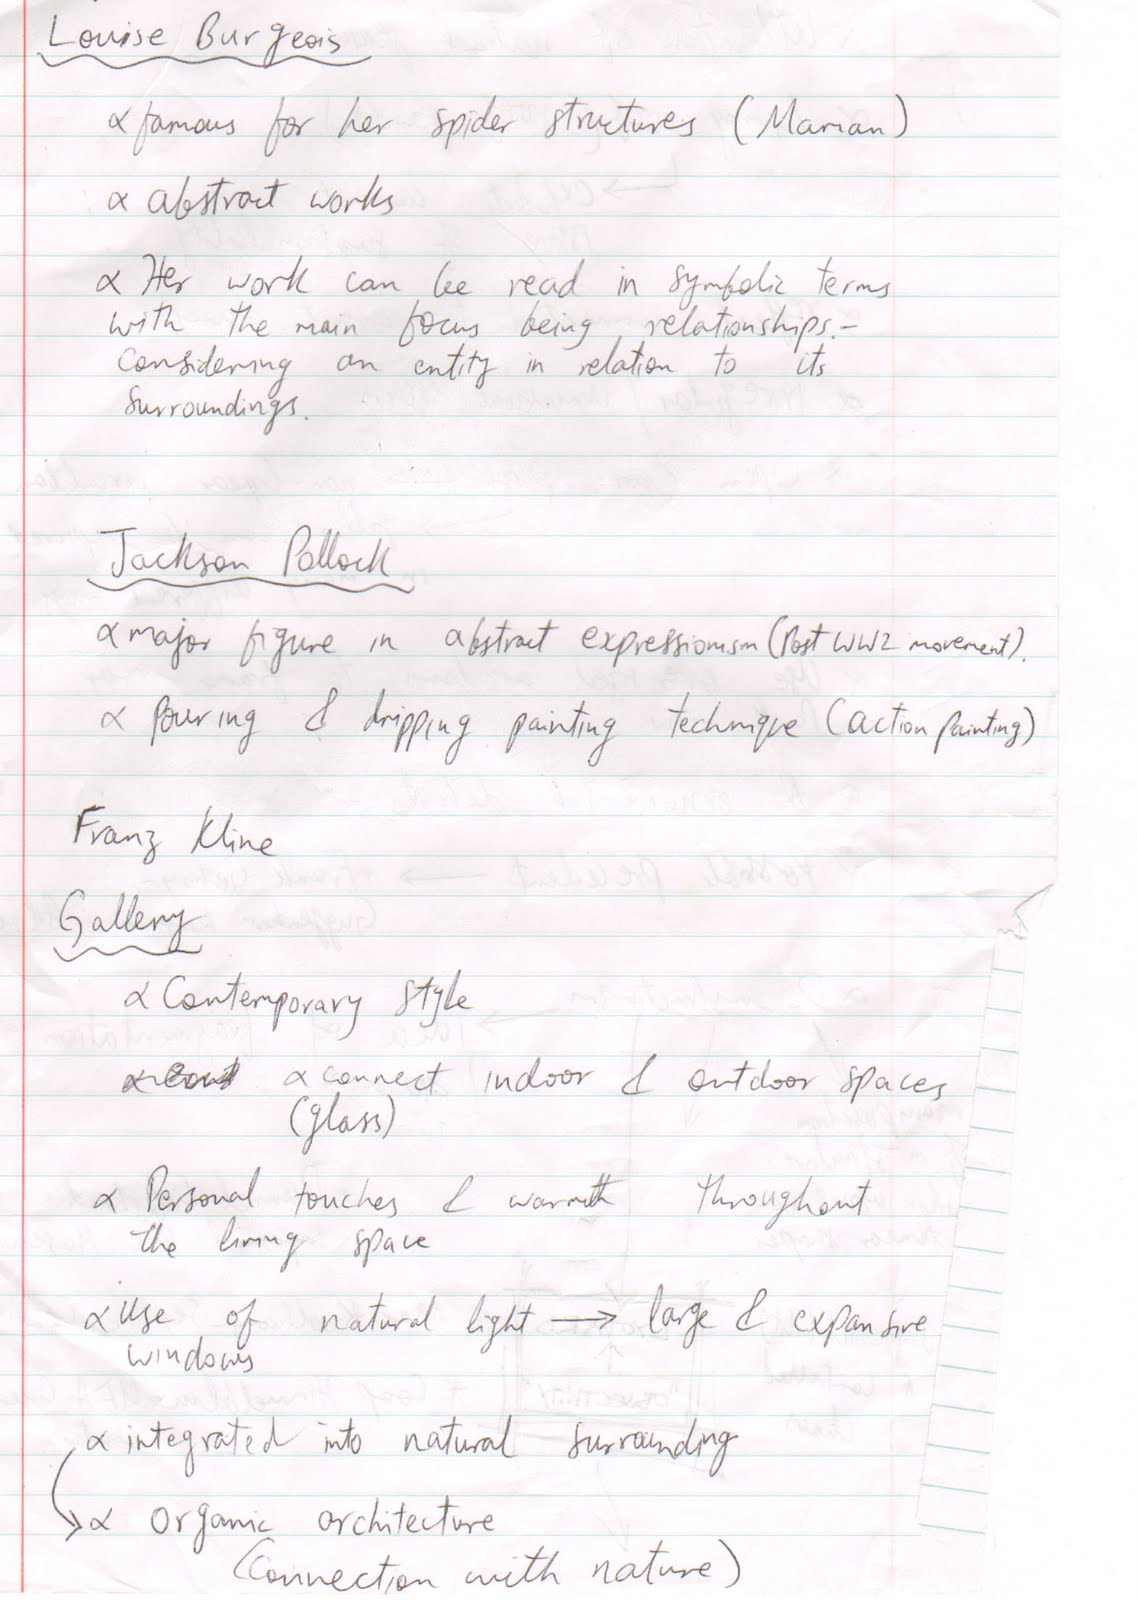 Louise Burgeois
∝ famous for her spider structures (Maman)
∝ abstract works
∝ Her work can be read in symbolic terms
with the main focus being relationships. -
Considering an entity in relation to its
surroundings.
Jackson Pollock
∝ major figure in abstract expressionism (Post WW2 movement).
∝ Pouring & dripping painting technique (action painting)
Franz Kline
Gallery
∝ Contemporary style
∝ connect indoor & outdoor spaces
(glass)
∝ Personal touches & warmth throughout
the living space
∝ Use of natural light → large & expansive
windows
∝ integrated into natural surrounding
∝ organic architecture
(Connection with nature)